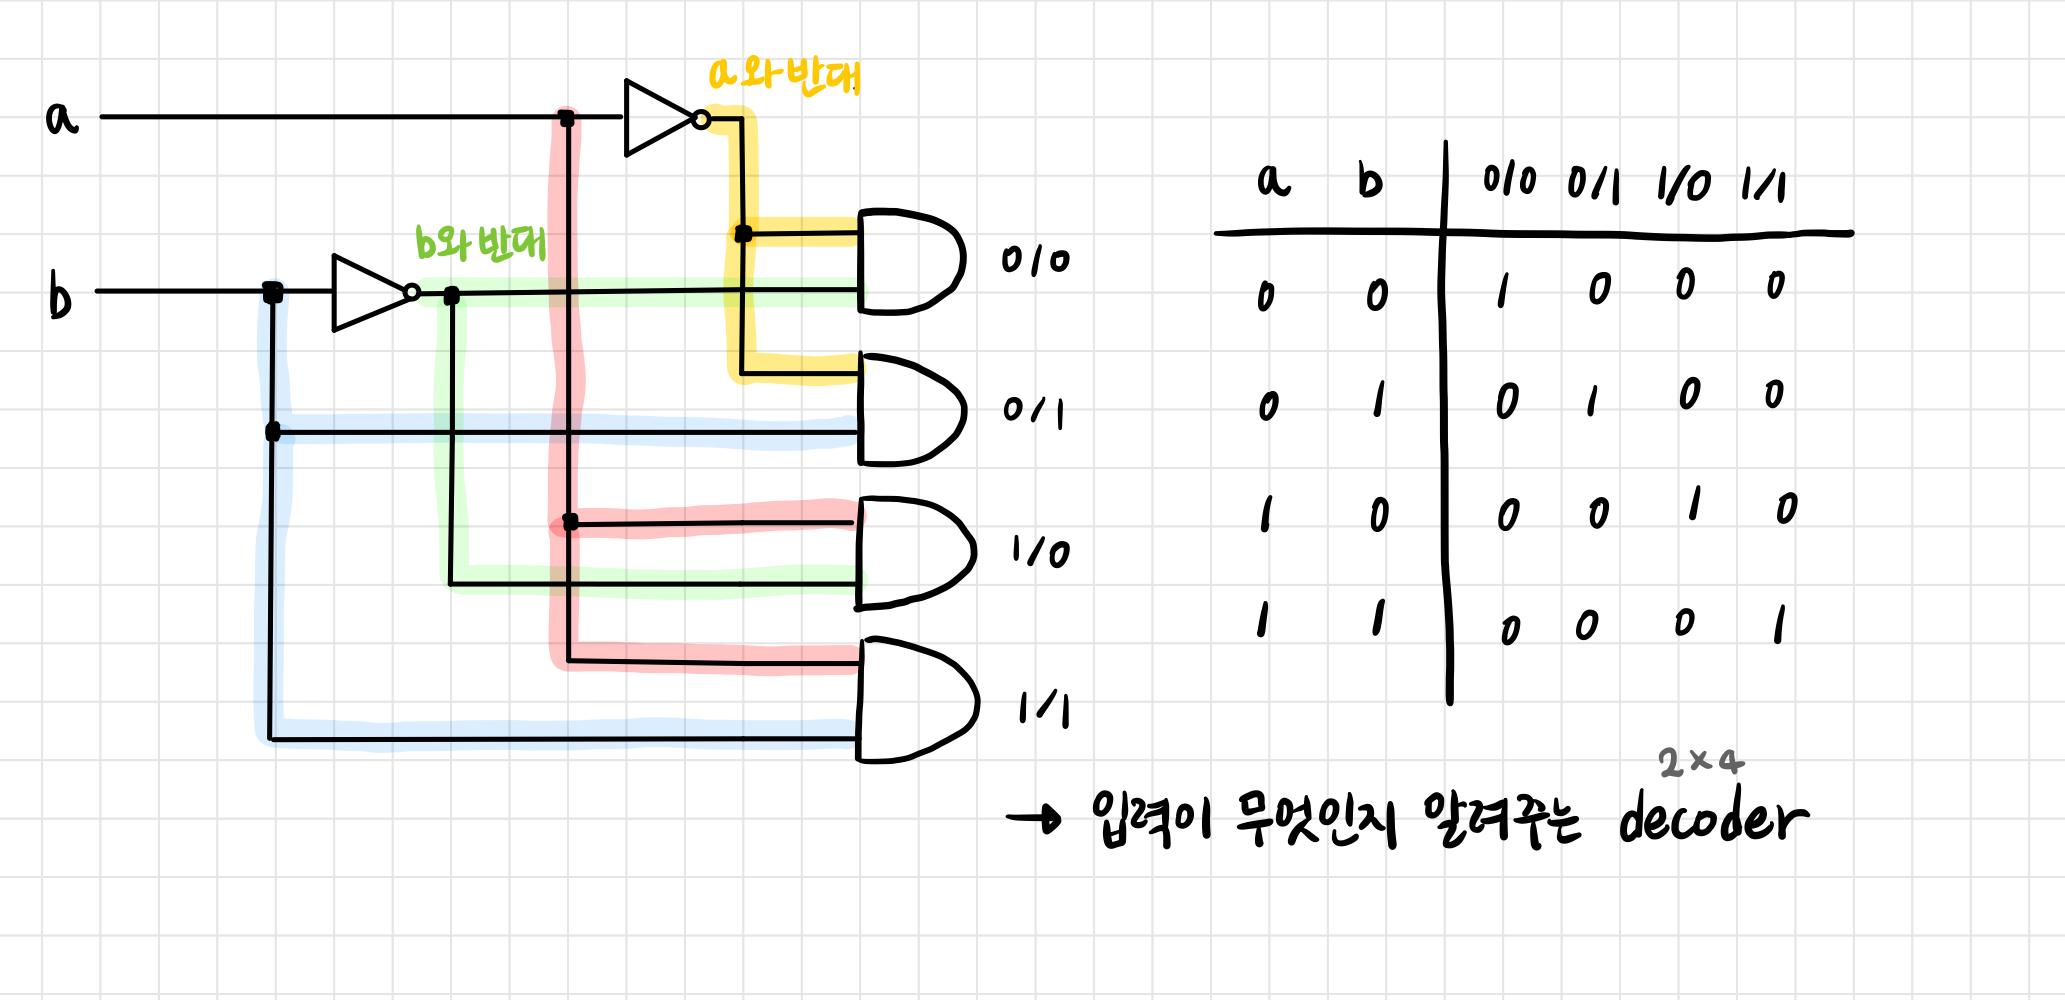 a
a와 반대
b와 반대
b
0/0
0/1
1/0
1/1
a b 0/0 0/1 1/0 1/1
0 0 1 0 0 0
0 1 0 1 0 0
1 0 0 0 1 0
1 1 0 0 0 1
2×4
→ 입력이 무엇인지 알려주는 decoder